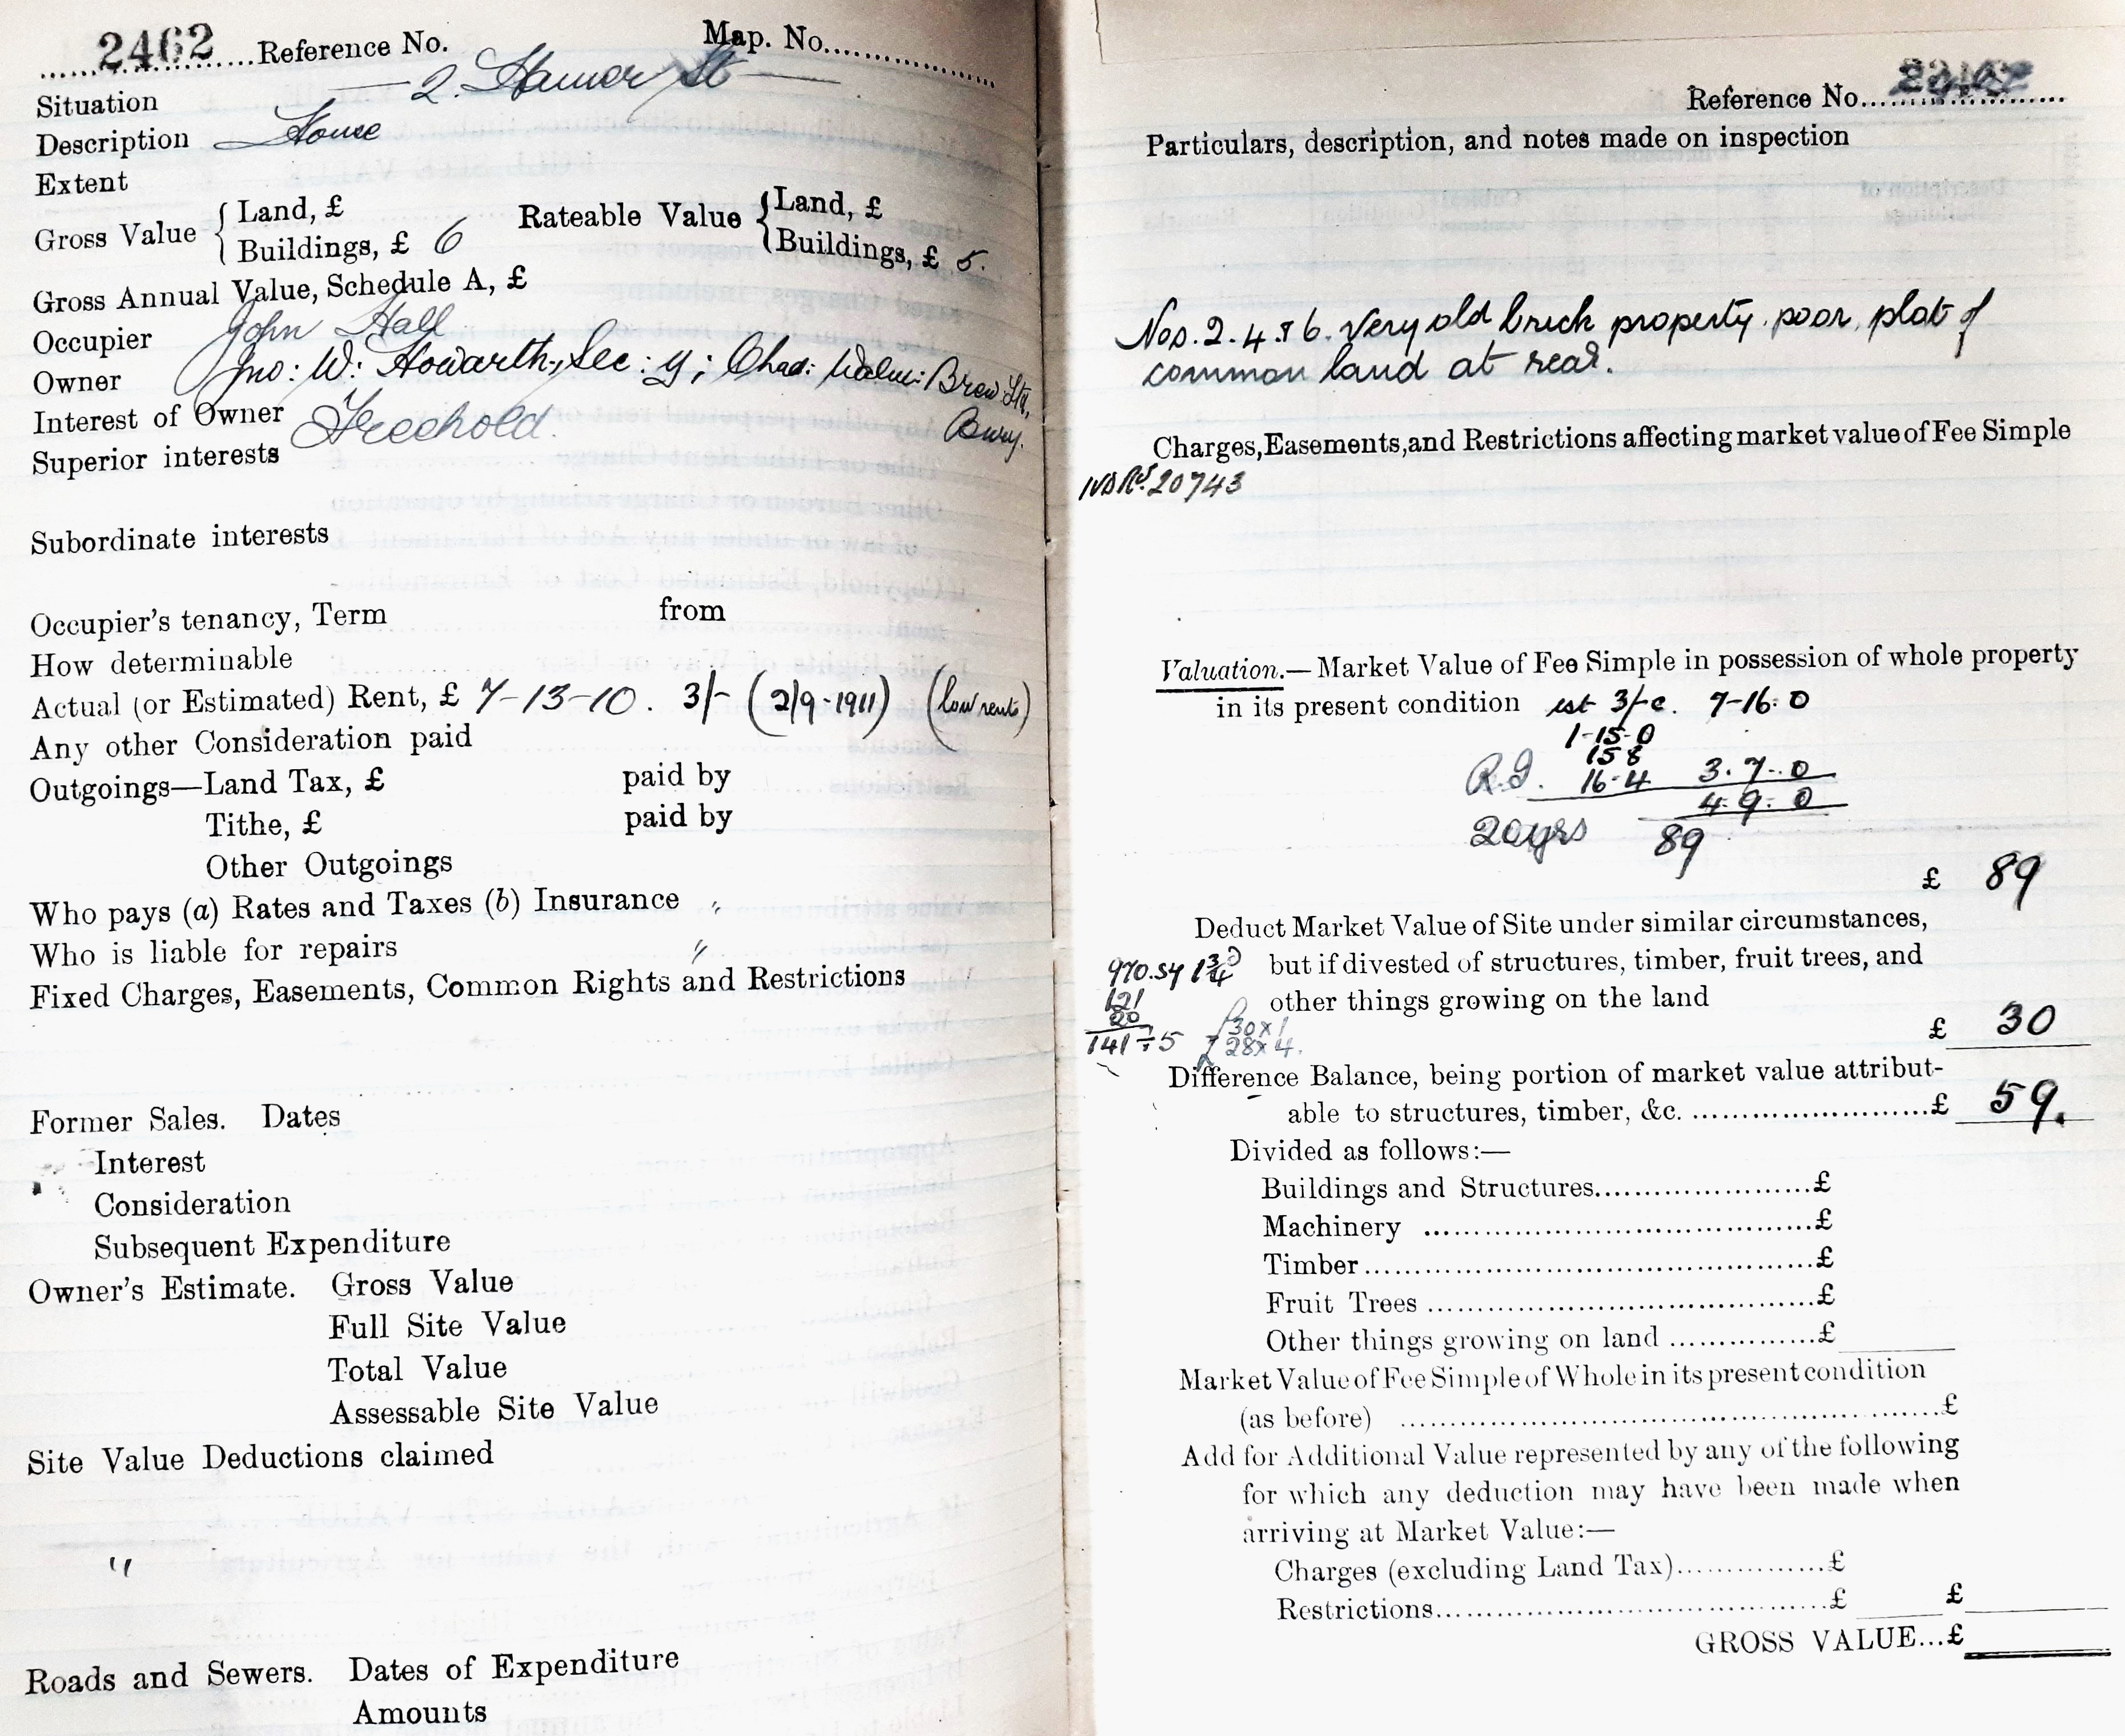 2462 Reference No. Map. No.
Situation 2. Hamer St
Description House
Extent
Gross Value { Land, £ Rateable Value { Land, £
Buildings, £ 6 Buildings, £ 5.
Gross Annual Value, Schedule A, £
Occupier John Hall
Owner Jno: W: Howarth, Sec: y; Chad: Brew
Interest of Owner Freehold. Bury.
Superior interests
Subordinate interests
Occupier's tenancy, Term from
How determinable
Actual (or Estimated) Rent, £ 7-13-10. 3/- (2/9-1911) (low rents)
Any other Consideration paid
Outgoings—Land Tax, £ paid by
Tithe, £ paid by
Other Outgoings
Who pays (a) Rates and Taxes (b) Insurance "
Who is liable for repairs "
Fixed Charges, Easements, Common Rights and Restrictions
Former Sales. Dates
Interest
Consideration
Subsequent Expenditure
Owner's Estimate. Gross Value
Full Site Value
Total Value
Assessable Site Value
Site Value Deductions claimed
"
Roads and Sewers. Dates of Expenditure
Amounts
Reference No.
Particulars, description, and notes made on inspection
Nos. 2. 4. & 6. Very old brick property. poor, plot of
common land at rear.
Charges, Easements, and Restrictions affecting market value of Fee Simple
20743
Valuation.—Market Value of Fee Simple in possession of whole property
in its present condition est 3/- c. 7-16-0
1-15-0
15 8
16-4 3. 7. 0
4. 9. 0
20 yrs 89
£ 89
Deduct Market Value of Site under similar circumstances,
970. sy 1 3/4 but if divested of structures, timber, fruit trees, and
121 other things growing on the land
20 £ 30
141 ÷ 5 30 x 1
28 x 4.
Difference Balance, being portion of market value attribut-
able to structures, timber, &c. £ 59.
Divided as follows:—
Buildings and Structures £
Machinery £
Timber £
Fruit Trees £
Other things growing on land £
Market Value of Fee Simple of Whole in its present condition
(as before) £
Add for Additional Value represented by any of the following
for which any deduction may have been made when
arriving at Market Value:—
Charges (excluding Land Tax) £
Restrictions £ £
GROSS VALUE...£